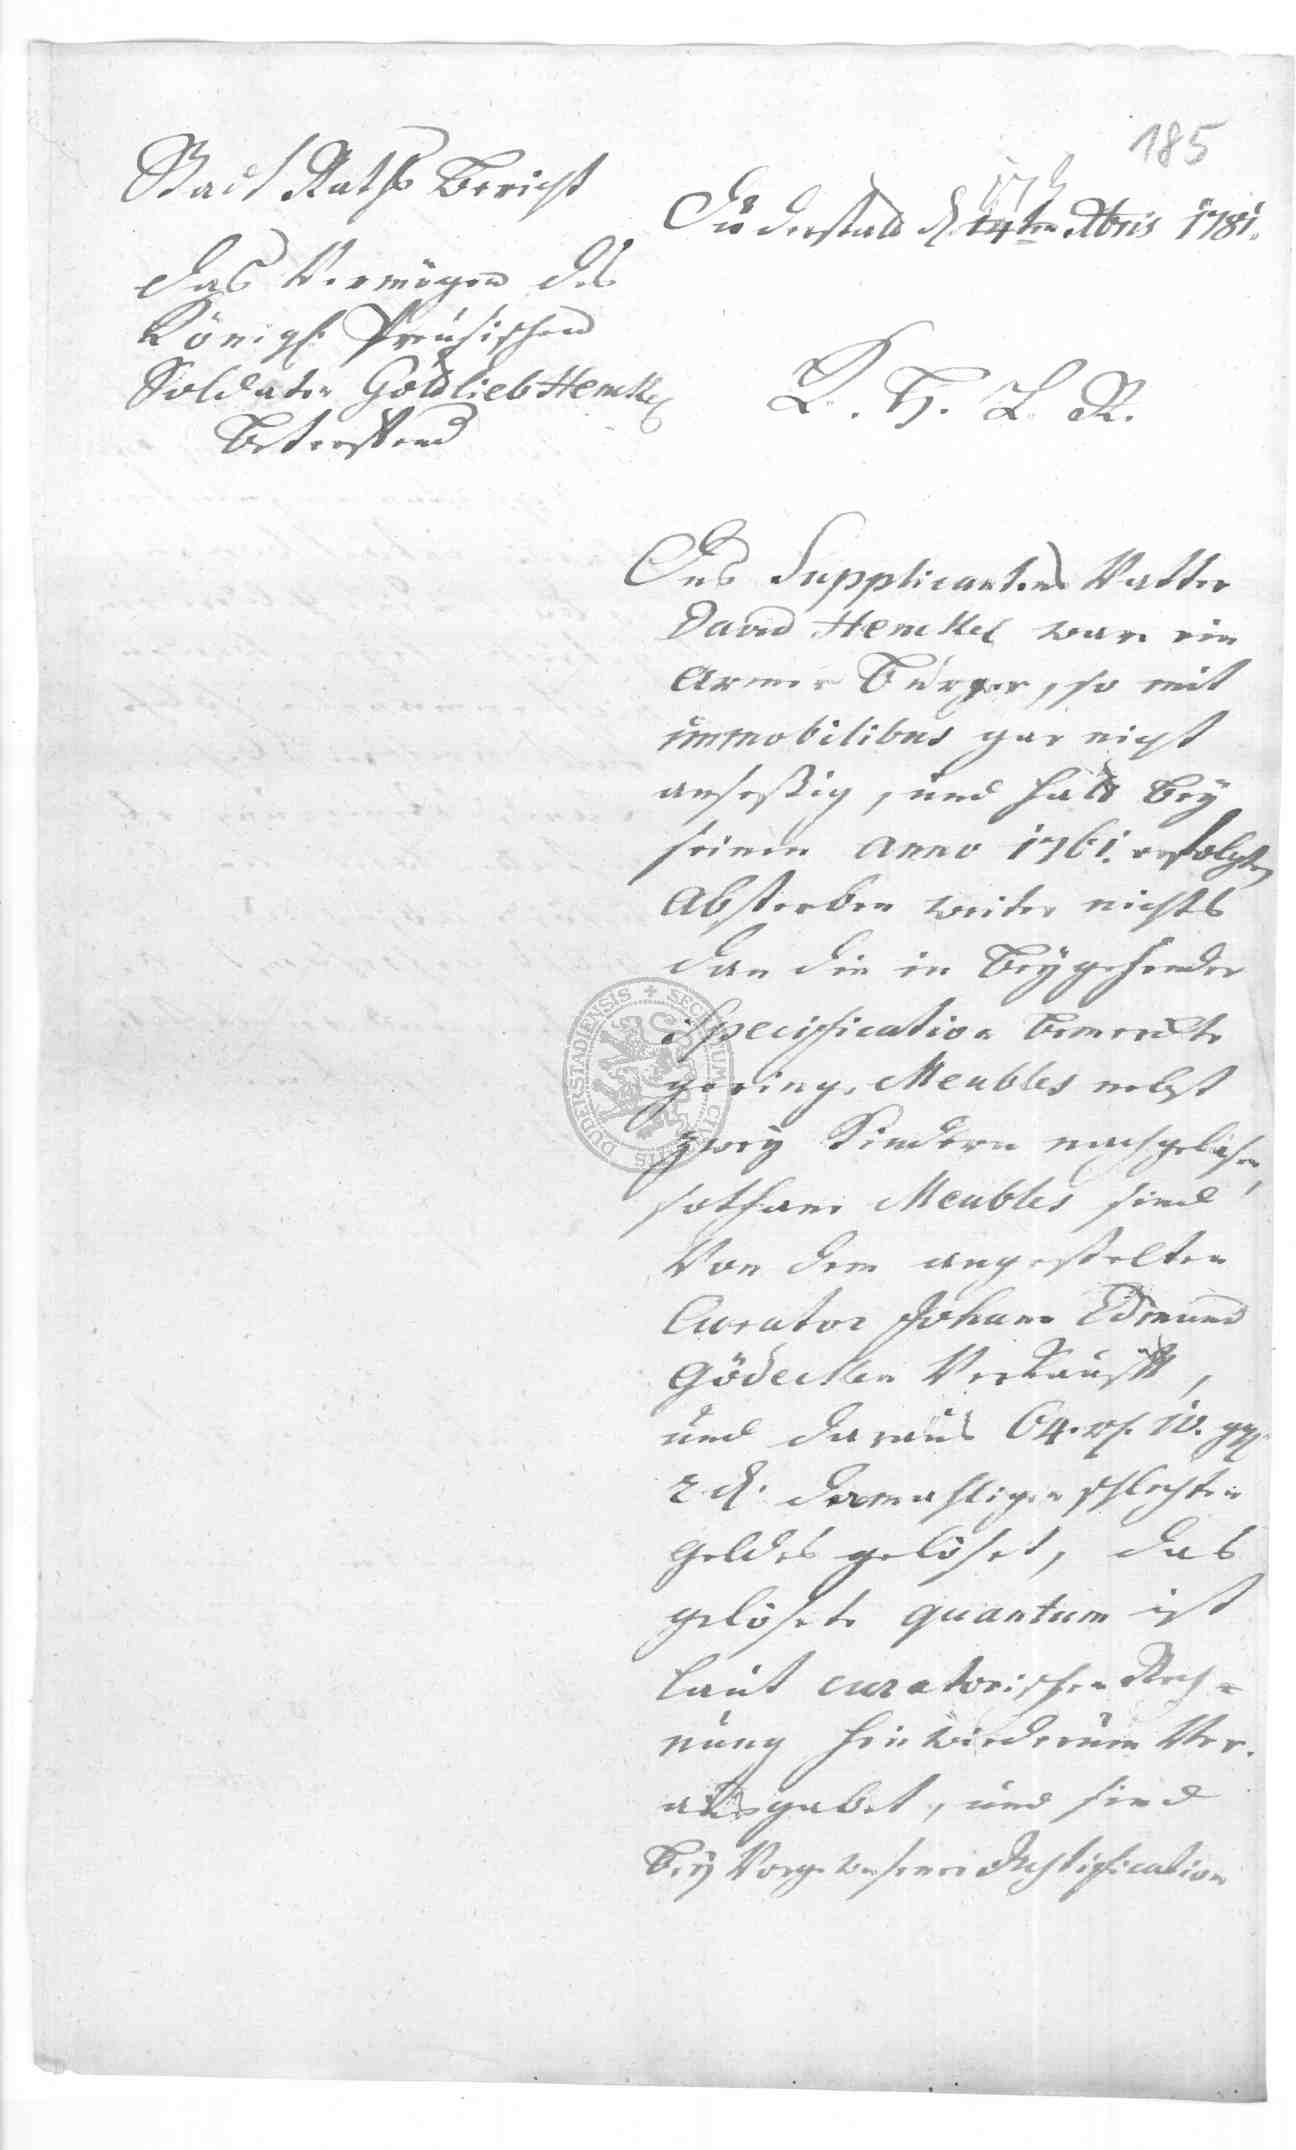 185
Stadt Raths Bericht
das Vermögen des
Königl. Preusischen
Soldaten Gottlieb Henckel
Betreffend
Duderstadt d. 17t 14ten Xbris 1781.
P. H. L. R.
Des Supplicantens Vatter
David Henckel ware ein
Armer Burger, so mit
immobilibus gar nicht
ansesßig, und hatt bey
seinem anno 1761. erfolgten
Absterben weiter nichts
dan die in beygehender
Specification bemerckte
geringe Meubles nebst
zwey Kindern nachgelasen,
sothane Meubles sind
Von dem angestelten
Curator Johann Edmund
Gödecken Verkaufft,
und daraus 64. rh. 10. ggl
2 d. dermahligen schlechten
geldes gelöset, das
gelösete quantum ist
laut curatorischen Rech=
nung hinwiederum Ver.
ausgabet, und sind
bey Vorgewesener Justification
SECRETUM CIVITATIS DUDERSTADIENSIS